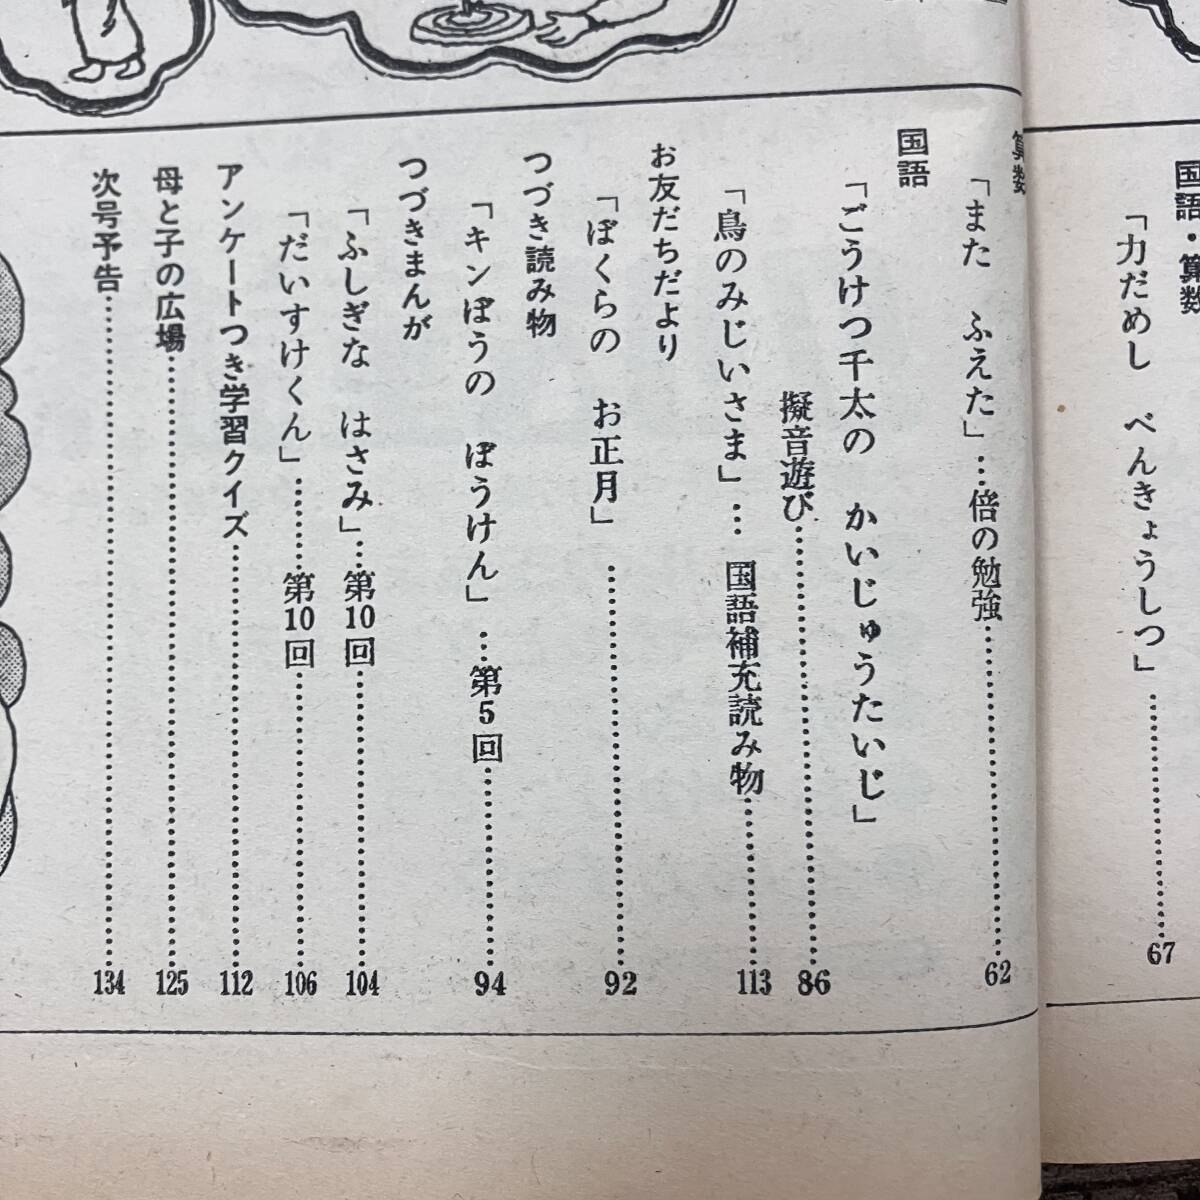 国語・算数
「力だめし べんきょうしつ」……67
算数
「また ふえた」…倍の勉強……62
国語
「ごうけつ千太の かいじゅうたいじ」
擬音遊び……86
「鳥のみじいさま」… 国語補充読み物……113
お友だちだより
「ぼくらの お正月」……92
つづき読み物
「キンぼうの ぼうけん」…第5回……94
つづきまんが
「ふしぎな はさみ」…第10回……104
「だいすけくん」……第10回……106
アンケートつき学習クイズ……112
母と子の広場……125
次号予告……134